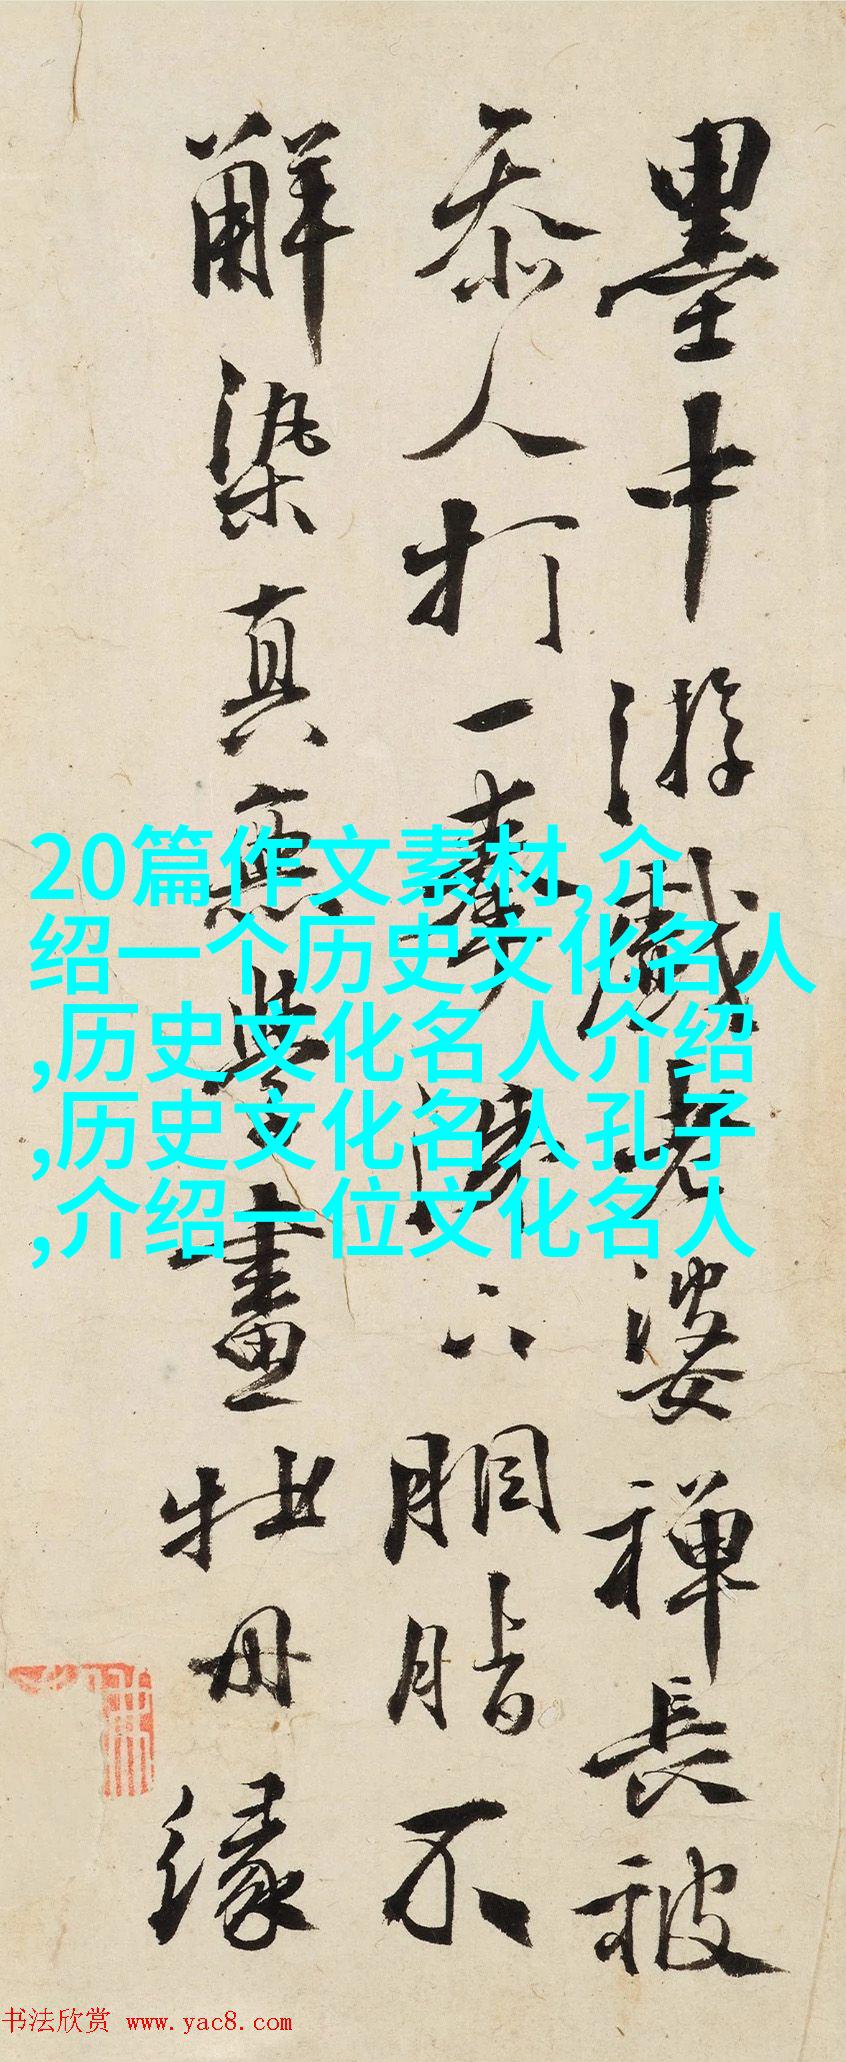 墨中游戲老婆禪長被
参人打一拳涕下胭脂不
解染真無學畫牡丹緣
20篇作文素材,介
绍一个历史文化名人
,历史文化名人介绍
,历史文化名人孔子
,介绍一位文化名人
书法欣赏 www.yac8.com